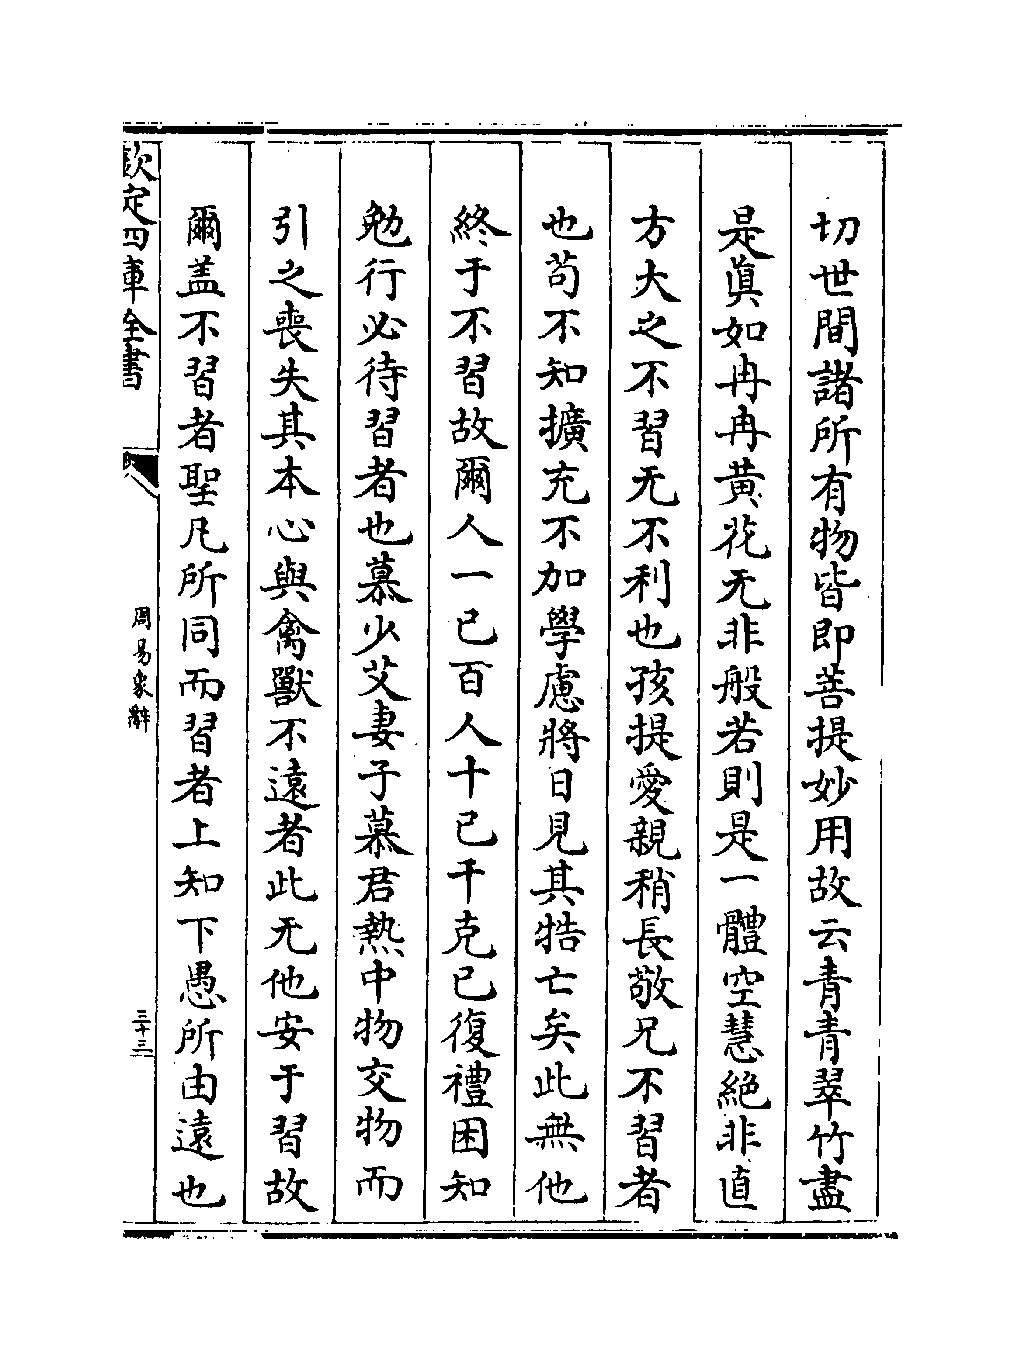 切世間諸所有物皆即菩提妙用故云青青翠竹盡
是眞如冉冉黄花无非般若則是一體空慧絶非直
方大之不習无不利也孩提愛親稍長敬兄不習者
也苟不知擴充不加學慮將日見其牿亡矣此無他
終于不習故爾人一已百人十已千克已復禮困知
勉行必待習者也慕少艾妻子慕君熱中物交物而
引之喪失其本心與禽獸不遠者此无他安于習故
爾盖不習者聖凡所同而習者上知下愚所由遠也
欽定四庫全書
周易象辭
三十三